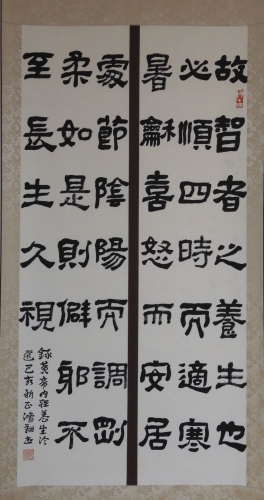 故智者之養生也
必順四時而適寒
暑龢喜怒而安居
處節陰陽而調剛
柔如是則僻邪不
至長生久視
錄黃帝內經養生
己亥新正